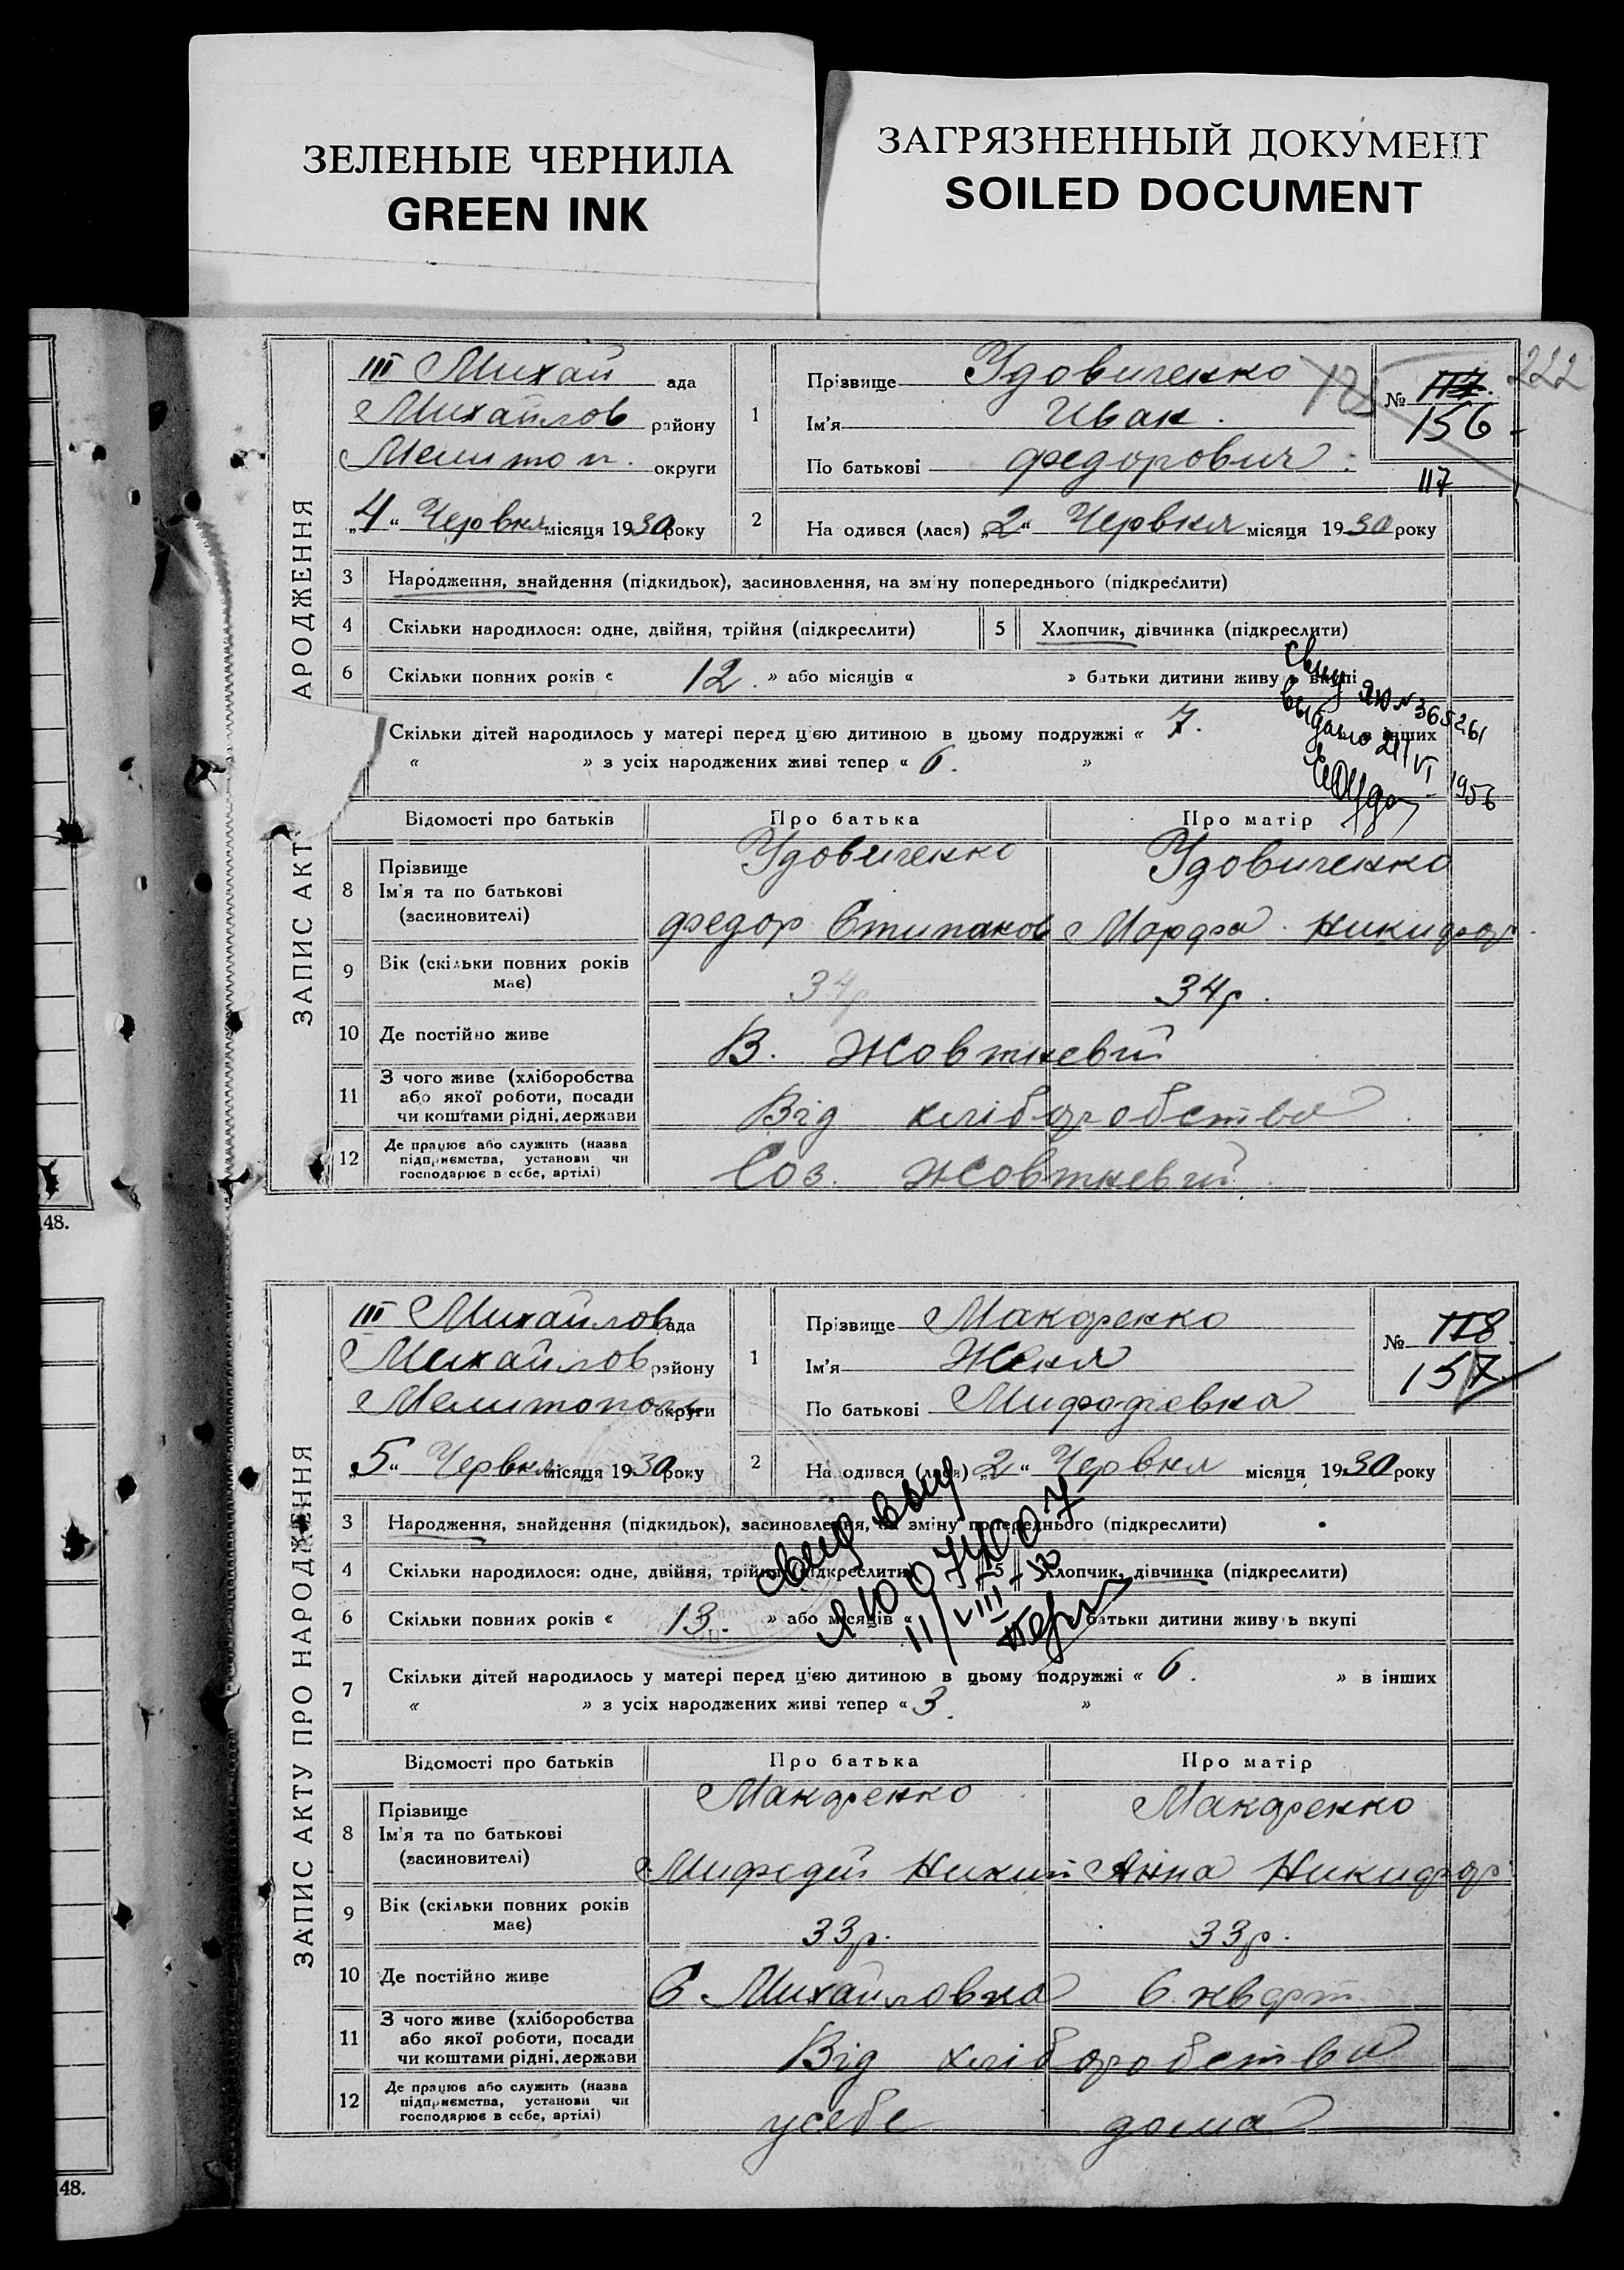 ЗЕЛЕНЫЕ ЧЕРНИЛА
GREEN INK
ЗАГРЯЗНЕННЫЙ ДОКУМЕНТ
SOILED DOCUMENT
222
АРОДЖЕННЯ
ЗАПИС АКТ
III Михай ада
Михайлов району
Мелитоп. округи
„4“ Червня місяця 1930 року
1 Прізвище Удовиченко
Ім'я Иван.
По батькові Федорович
№ 117.
156
117
125
2 На одився (лася) „2“ Червня місяця 1930 року
3 Народження, знайдення (підкидьок), засиновлення, на зміну попереднього (підкреслити)
4 Скільки народилося: одне, двійня, трійня (підкреслити) 5 Хлопчик, дівчинка (підкреслити)
6 Скільки повних років « 12. » або місяців « » батьки дитини живу ь вкупі
Скільки дітей народилось у матері перед цією дитиною в цьому подружжі « 7. в інших
« » з усіх народжених живі тепер « 6. »
ЯЮ № 365261
выдано 21/VI 1956
Відомості про батьків Про батька Про матір
8 Прізвище
Ім'я та по батькові
(засиновителі)
Удовиченко Удовиченко
Федор Стипанов Марфа Никифор
9 Вік (скільки повних років має) 34р 34р.
10 Де постійно живе В. Жовтневій
11 З чого живе (хліборобства
або якої роботи, посади
чи коштами рідні, держави
Від хліборобства
12 Де працює або служить (назва
підприємства, установи чи
господарює в себе, артілі)
Соз. Жовтневій
48.
ЗАПИС АКТУ ПРО НАРОДЖЕННЯ
III Михайлов ада
Михайлов району
Мелитополь округи
„5“ Червня місяця 1930 року
1 Прізвище Макаренко
Ім'я Женя
По батькові Мифодієвна
№ 118.
157
2 На одився (лася) „2“ Червня місяця 1930 року
3 Народження, знайдення (підкидьок), засиновлення, на зміну попереднього (підкреслити)
4 Скільки народилося: одне, двійня, трійня (підкреслити) 5 Хлопчик, дівчинка (підкреслити)
6 Скільки повних років « 13. » або місяців « батьки дитини живу ь вкупі
7 Скільки дітей народилось у матері перед цією дитиною в цьому подружжі « 6. » в інших
« » з усіх народжених живі тепер « 3. »
свид выд
Відомості про батьків Про батька Про матір
8 Прізвище
Ім'я та по батькові
(засиновителі)
Макаренко Макаренко
Мифодій Никит Анна Никифор
9 Вік (скільки повних років має) 33р. 33р.
10 Де постійно живе С Михайловка 6 кварт
11 З чого живе (хліборобства
або якої роботи, посади
чи коштами рідні, держави
Від хліборобства
12 Де працює або служить (назва
підприємства, установи чи
господарює в себе, артілі)
усебе дома
48.